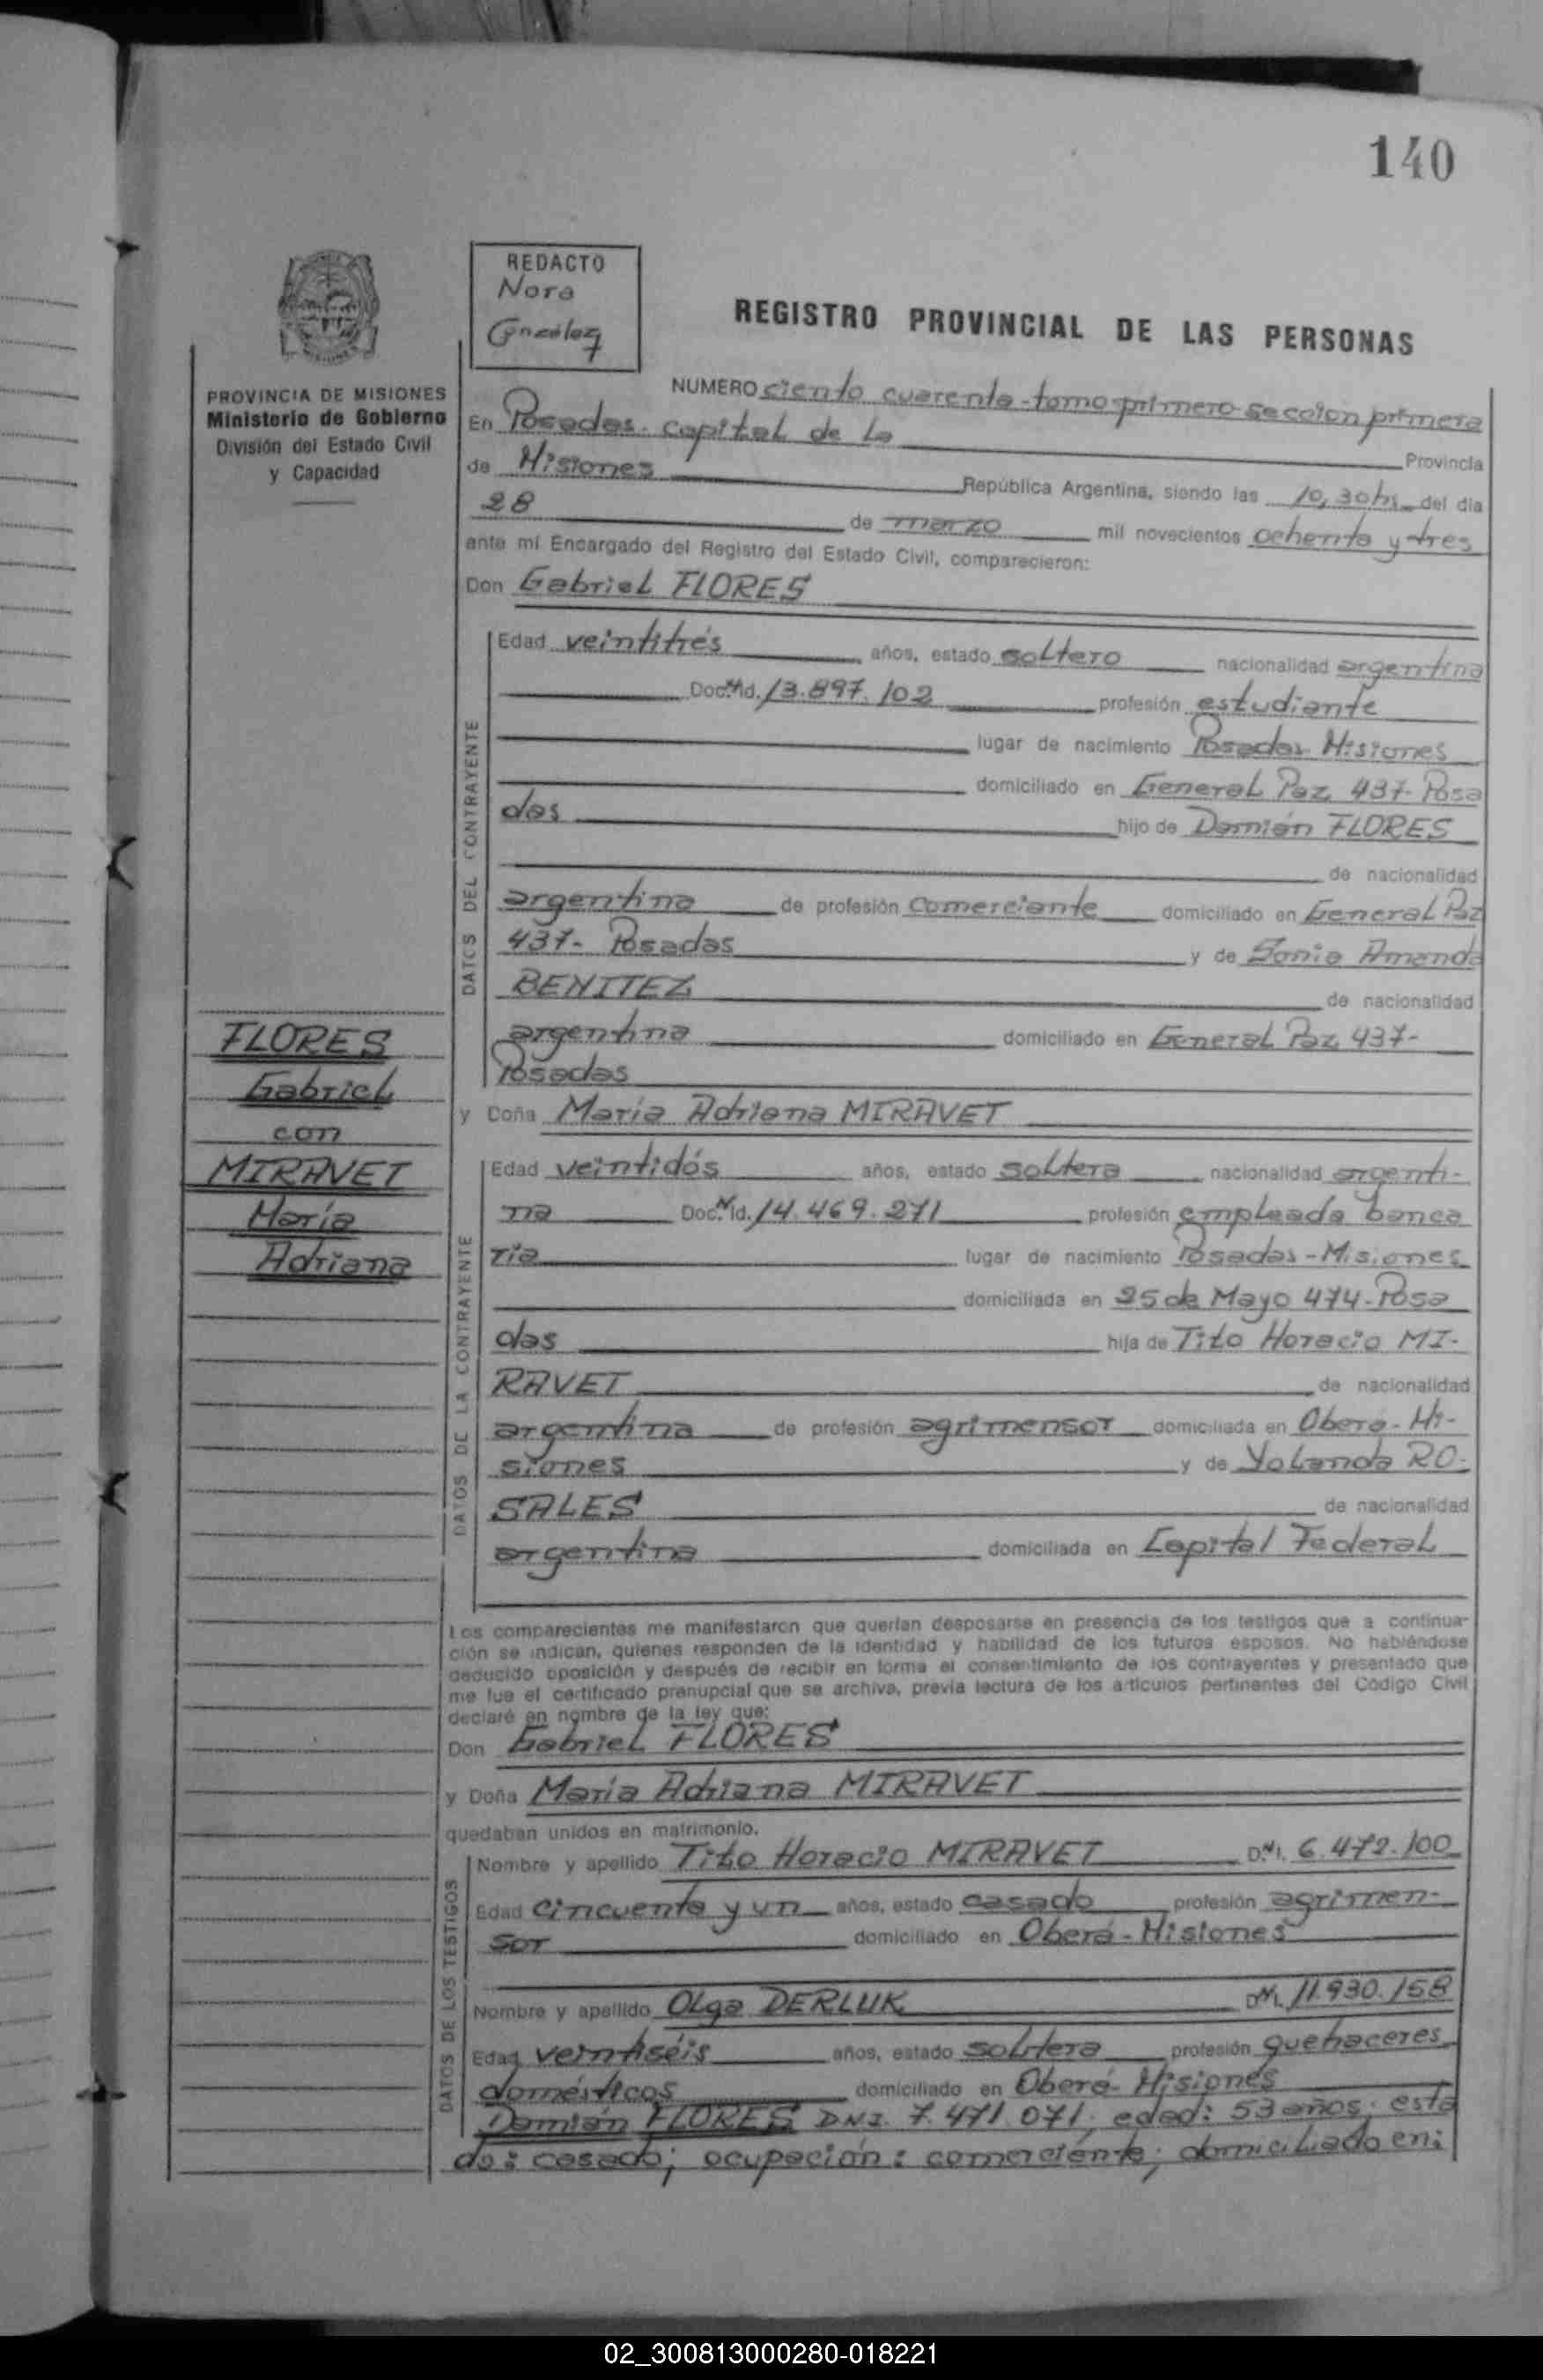 140
REDACTO
Nora
González
REGISTRO PROVINCIAL DE LAS PERSONAS
PROVINCIA DE MISIONES
Ministerio de Gobierno
División del Estado Civil
y Capacidad
NUMERO ciento cuarenta - tomo primero seccion primera
En Posadas. capital de la Provincia
de Misiones República Argentina, siendo las 10,30 hs del día
28 de marzo mil novecientos ochenta y tres
ante mí Encargado del Registro del Estado Civil, comparecieron:
Don Gabriel FLORES
DATOS DEL CONTRAYENTE
Edad veintitrés años, estado soltero nacionalidad argentina
Doc. Id. 13.897.102 profesión estudiante
lugar de nacimiento Posadas Misiones
domiciliado en General Paz 437- Posa
das hijo de Damián FLORES
de nacionalidad
argentina de profesión comerciante domiciliado en General Paz
437- Posadas y de Sonia Amanda
BENITEZ de nacionalidad
argentina domiciliado en General Paz 437-
Posadas
FLORES
Gabriel
con
MIRAVET
María
Adriana
y Doña María Adriana MIRAVET
DATOS DE LA CONTRAYENTE
Edad veintidós años, estado soltera nacionalidad argenti-
na Doc. Id. 14.469.271 profesión empleada banca
ria lugar de nacimiento Posadas - Misiones
domiciliada en 25 de Mayo 474- Posa
das hija de Tito Horacio MI-
RAVET de nacionalidad
argentina de profesión agrimensor domiciliada en Oberá - Mi-
siones y de Yolanda RO-
SALES de nacionalidad
argentina domiciliada en Capital Federal
Los comparecientes me manifestaron que querían desposarse en presencia de los testigos que a continua-
ción se indican, quienes responden de la identidad y habilidad de los futuros esposos. No habiéndose
deducido oposición y después de recibir en forma el consentimiento de los contrayentes y presentado que
me fue el certificado prenupcial que se archiva, previa lectura de los artículos pertinentes del Código Civil
declaré en nombre de la ley que:
Don Gabriel FLORES
y Doña María Adriana MIRAVET
quedaban unidos en matrimonio.
DATOS DE LOS TESTIGOS
Nombre y apellido Tito Horacio MIRAVET DNI. 6.472.100
Edad cincuenta y un años, estado casado profesión agrimen-
sor domiciliado en Oberá - Misiones
Nombre y apellido Olga DERLUK DNI. 11.930.158
Edad veintiséis años, estado soltera profesión quehaceres
domésticos domiciliado en Oberá - Misiones
Damián FLORES DNI. 7.471.071; edad: 53 años; esta
do: casado; ocupación: comerciante; domiciliado en:
02_300813000280-018221